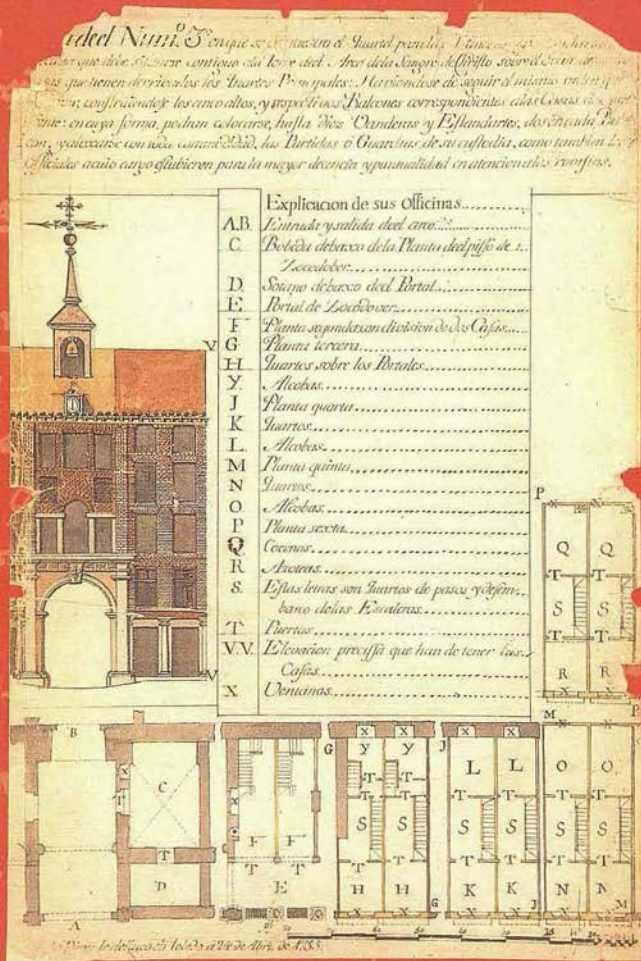 deel Num.º 3º en que se demuestra el Quartel para las
que debe situarse contiguo al Torre deel Arco dela Sangre de Christo sobre el
que tienen derrivadas los Quartos Principales: Haviendose de seguir el mismo orden
construiendose los cinco altos, y respectivos Balcones correspondientes alas Casas
en cuya forma, podran colocarse, hasta diez Vanderas y Estandartes, dos en cada
y alocarse con toda commodidad, las Partidas ó Guardias de su custodia, como tambien los
Officiales acuio cargo estubieren para la mayor decencia y puntualidad en atencion a las revistas.
Explicacion de sus Officinas
A.B. Entrada y salida deel arco
C Bobeda debaxo de la Planta deel pisso de
Zocodober
D. Sotano debaxo deel Portal
E Portal de Zocodover
F Planta segunda con division de dos Casas
G Planta tercera
H Quartos sobre los Portales
Y. Alcobas
J Planta quarta
K Quartos
L. Alcobas
M Planta quinta
N Quartos
O Alcobas
P Planta sexta
Q Cocinas
R Azoteas
S. Estas letras son Quartos de pasos y desem-
barco delas Escaleras
T Puertas
V.V. Elevacion precissa que han de tener las
Casas
X Ventanas
V
V
P
X X
Q Q
T T
S S
T T
R R
X X
B
X
T
C
T
D
A
X
F F
T T
E
G
X X
Y Y
T T
S S
T T
H H
X X
G
J
X X
L L
T T
S S
T T
K K
X X
J
M
X X
P
O O
T T
S S
T T
N N
X X
M
Toledo a 24 de Abril de